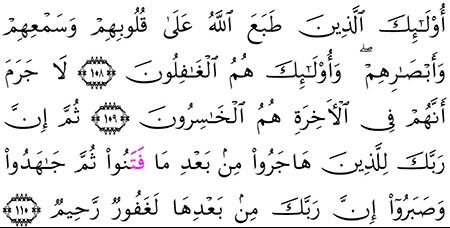 أُوْلَٰٓئِكَ ٱلَّذِينَ طَبَعَ ٱللَّهُ عَلَىٰ قُلُوبِهِمْ وَسَمْعِهِمْ
وَأَبْصَٰرِهِمْ ۖ وَأُوْلَٰٓئِكَ هُمُ ٱلْغَٰفِلُونَ ١٠٨ لَا جَرَمَ
أَنَّهُمْ فِى ٱلْأَخِرَةِ هُمُ ٱلْخَٰسِرُونَ ١٠٩ ثُمَّ إِنَّ
رَبَّكَ لِلَّذِينَ هَاجَرُوا۟ مِنۢ بَعْدِ مَا فَتَنُوا۟ ثُمَّ جَٰهَدُوا۟
وَصَبَرُوٓا۟ إِنَّ رَبَّكَ مِنۢ بَعْدِهَا لَغَفُورٌ رَّحِيمٌ ١١٠